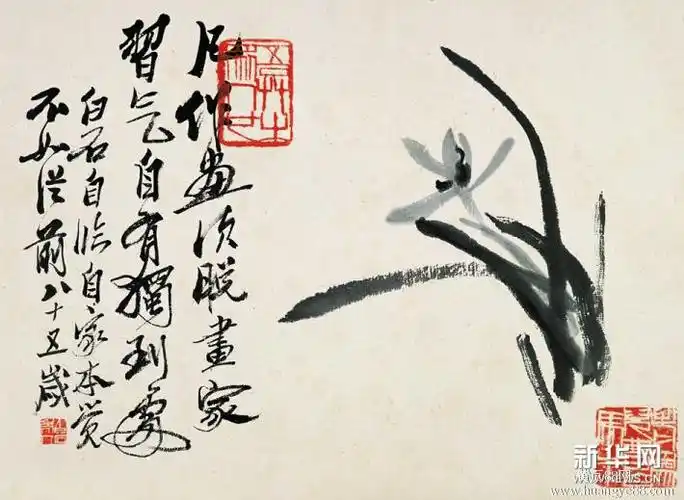 凡作畫須脫畫家
習气自有獨到處
白石自临自家本覺
不如從前八十五歲
新华网
www.huangye88.com